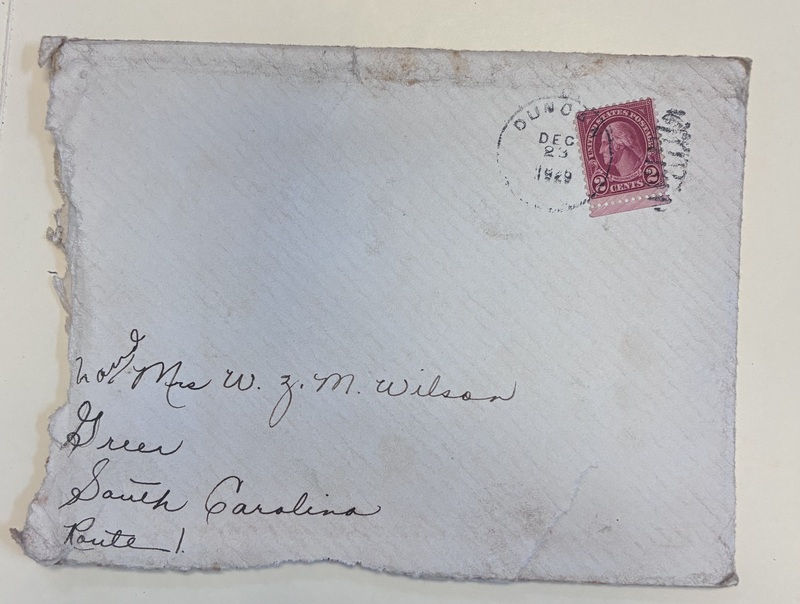 DUNC
DEC
23
1929
UNITED STATES POSTAGE
2 CENTS 2
Mrs W. Z. M. Wilson
Greer
South Carolina
Route 1.